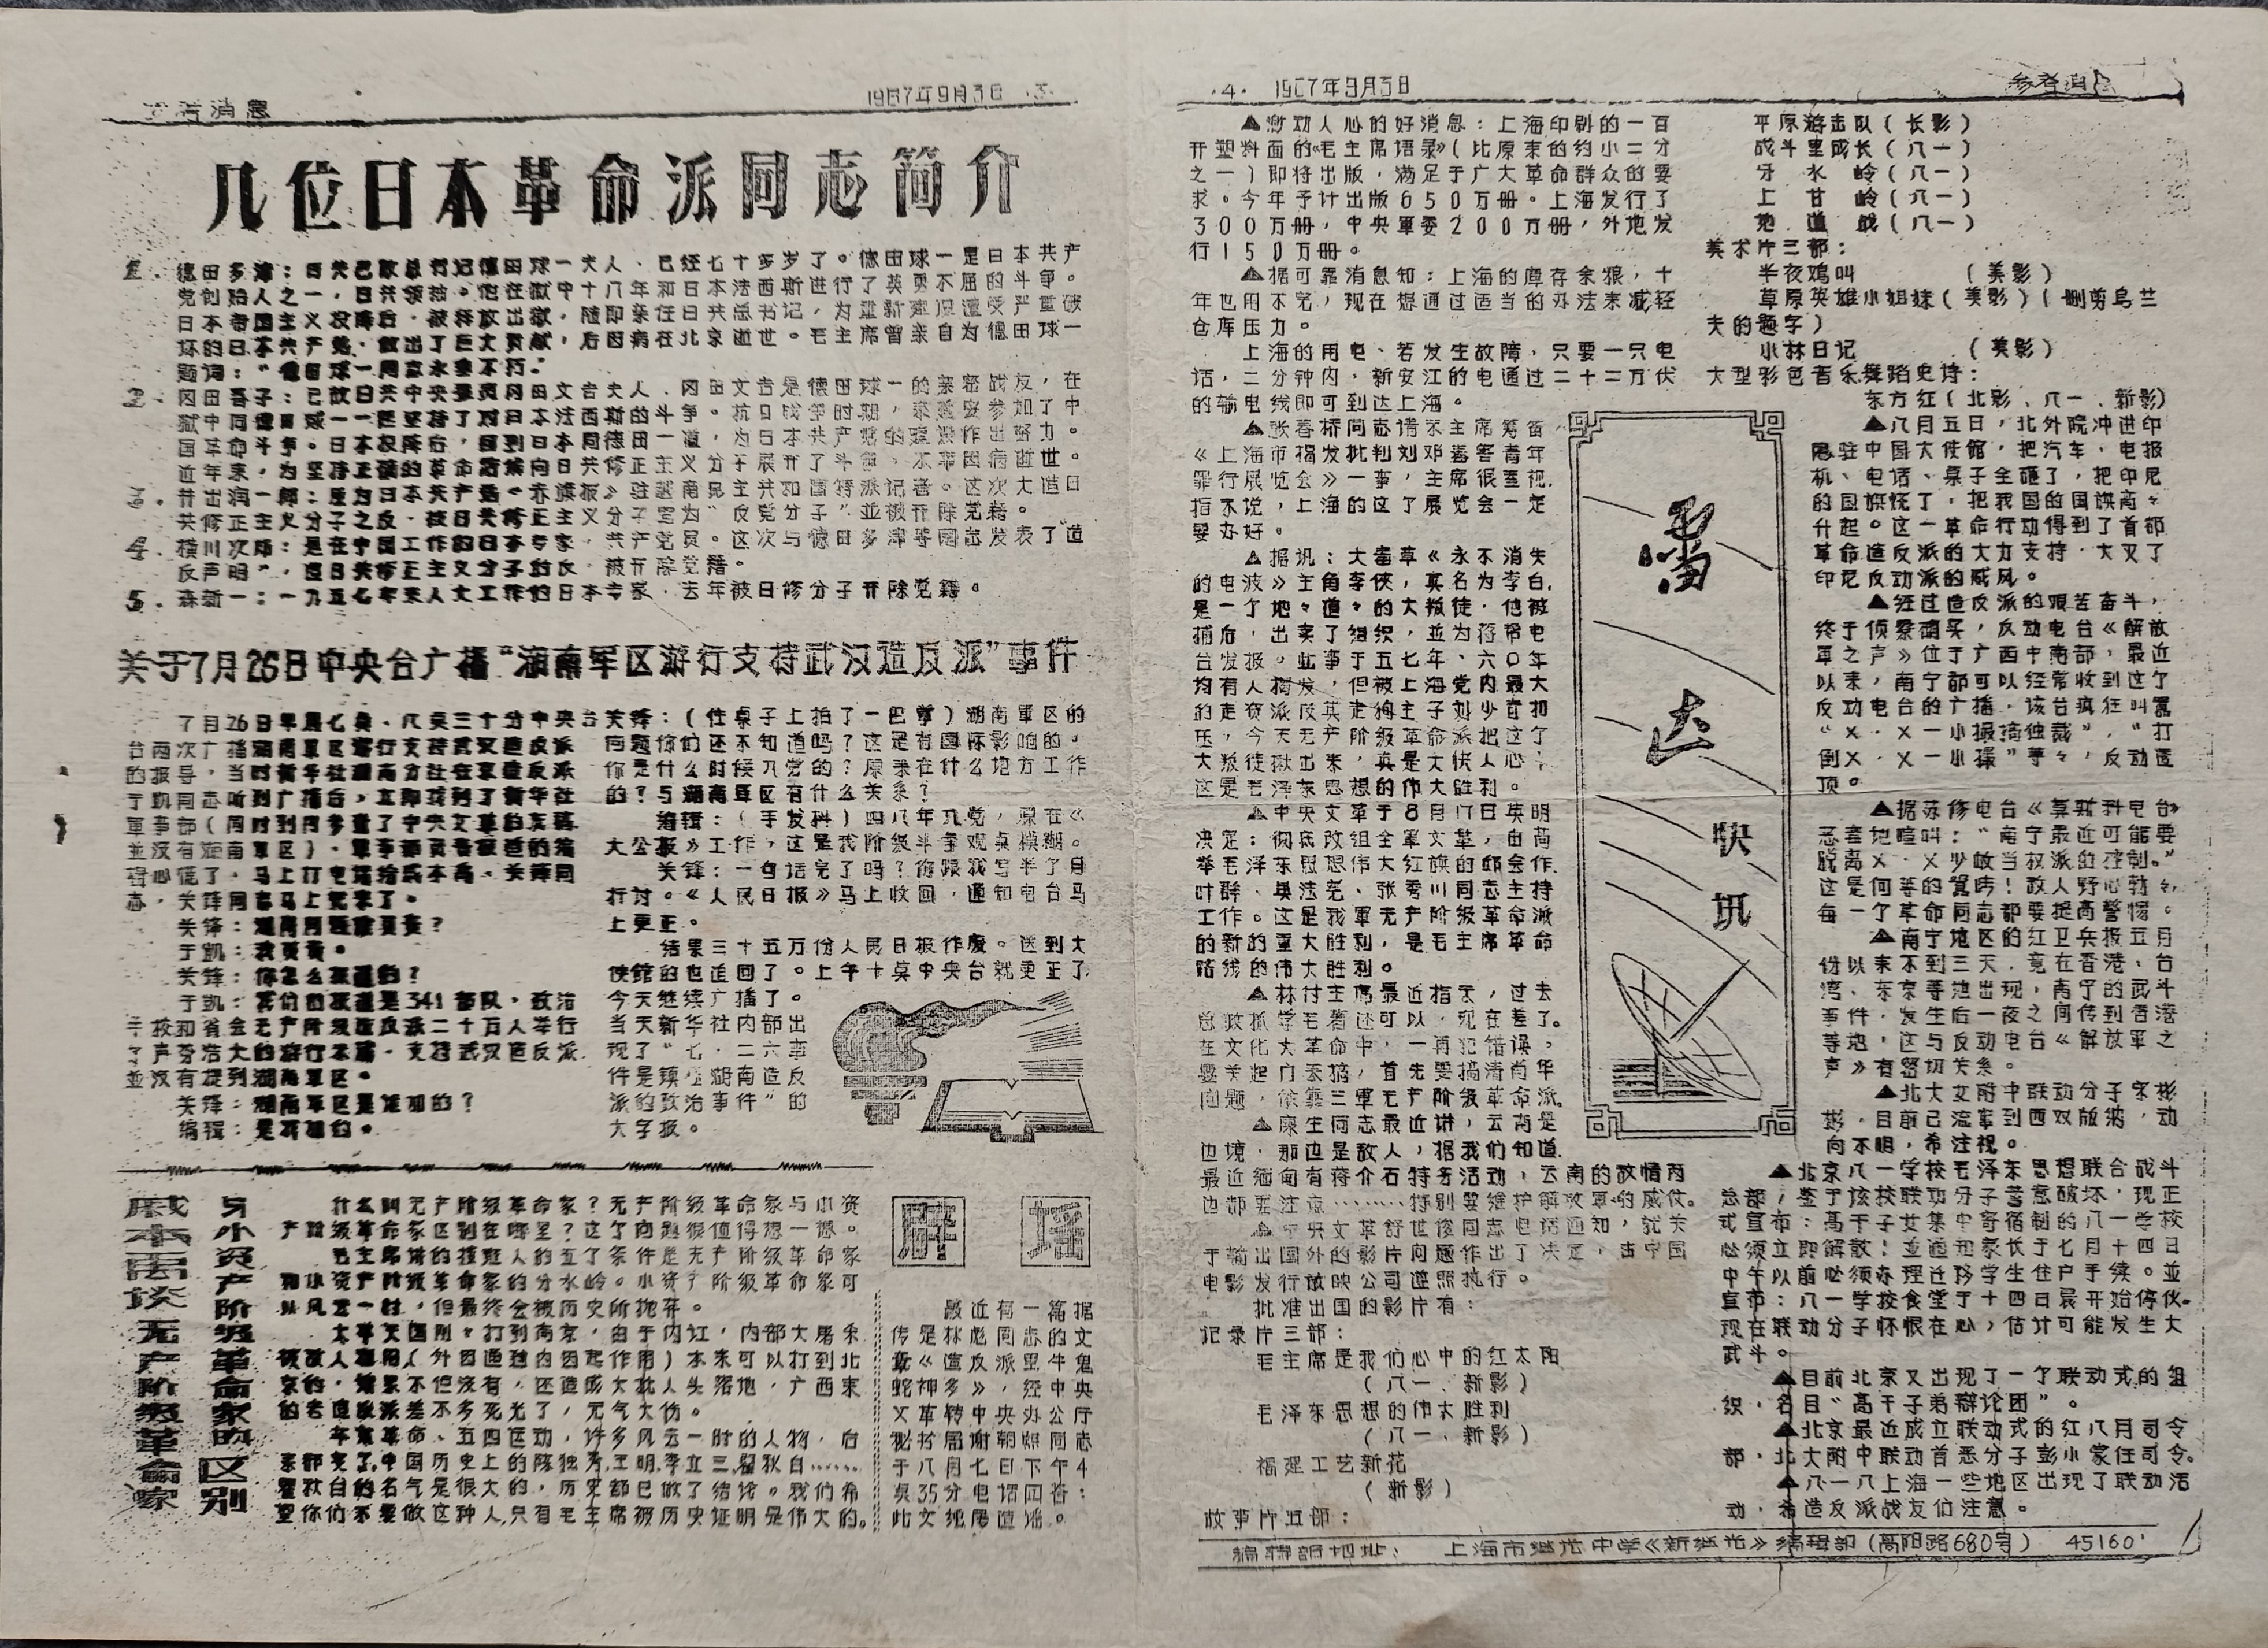 参考消息
1967年9月3日 ·3·
几位日本革命派同志简介
1. 德田多津：日共已故总书记德田球一夫人、已经七十多岁了。德田球一是日本共产
党创始人之一，日共领袖。他在狱中十八年和日本法西斯进行了英勇不屈的斗争。
日本帝国主义投降后，被释放出狱，随即亲任日共总书记，为重新建设遭受严重破
坏的日本共产党，做出了巨大贡献，后因病在北京逝世。毛主席曾亲自为德田球一
题词：“德田球一同志永垂不朽。”
2. 冈田吾子：已故日共中央委员冈田文吉夫人、冈田文吉是德田球一的亲密战友，在
狱中同德田球一一起坚持了对日本法西斯的斗争。抗日战争时期，来延安参加了中
国革命斗争。日本投降后，回到日本同德田一道，为日本共产党的建设作出努力。
近年来，为坚持正确的革命路线向日共修正主义分子展开了斗争，不幸因病逝世。
3. 井出润一郎：原为日本共产党《赤旗报》驻越南民主共和国特派记者。这次大造日
共修正主义分子之反，被日共修正主义分子定为“反党分子”並被开除党籍。
4. 横川次郎：是在中国工作的日本专家、共产党员。这次与德田多津等同志发表了“造
反声明”，造日共修正主义分子的反，被开除党籍。
5. 森新一：一九五七年来人大工作的日本专家，去年被日修分子开除党籍。
关于7月26日中央台广播“湖南军区游行支持武汉造反派”事件
7月26日早晨七点、八点三十分中央台
台两次广播湖南军区游行支持武汉造反派
的报导，当时新华社湖南分社在京造反派
于凯同志听到广播后，立即找到了新华社
軍事部（同时到内参查了中央文革的底稿
並没有湖南軍区）。軍事部负责报道的编
辑心慌了，马上打电话给戚本禹、关锋同
志，关锋同志马上就来了。
关锋：湖南问题谁负责？
于凯：我负责。
关锋：你怎么报道的？
于凯：我们的报道是341部队，政治
干校和省会无产阶级造反派二十万人举行
了声势浩大的游行示威，支持武汉造反派。
並没有提到湖南軍区。
关锋：湖南军区是谁加的？
编辑：是我加的。
关锋：（往桌子上拍了一巴掌）湖南軍区的
问题你们还不知道吗？这是有国际影响的。
你是什么时候入党的？原来在什么地方工作
的？与湖南軍区有什么关系？
编辑：（手发抖）四八年入党，原在《
大公报》工作，这是我阶级斗争观点模糊。
关锋：一句话完了吗？你跟我写半了月
检讨。《人民日报》马上收回，通知电台马
上更正。
结果三十五万份人民日报作废。送到大
使馆的也追回了。上午十点中央台就更正了，
今天继续广播了。
当天新华社内部出
现了“七·二六事
件是镇压湖南造反
派的政治事件”的
大字报。
戚本禹谈无产阶级革命家
与小资产阶级革命家的区别
什么叫无产阶级革命家？无产阶级革命家与小资
产阶级革命家区别在哪里？这了问题很值得想一想。
毛主席讲的接班人的五了条件是无产阶级革命家
和小资产阶级革命家的分水岭。小资产阶级革命家可
以风云一时，但最终会被历史所抛弃。
太平天国刚々打到南京，由于内讧，内部大屠杀
被敌人利用（外因通过内因起作用）本来可以打到北
京的，结果不但没有，还造成大批人头落地，广西来
的老造反派差不多死光了，元气大伤。
辛亥革命、五四运动，许多风云一时的人物，后
来都变了，中国历史上的陈独秀，王明，李立三，瞿秋白……
瞿秋白的名气是很大的，历史都已做了结论。我们希
望你们不要做这种人，只有毛主席被历史证明是伟大的。
辟 瑶
最近有一篇据
传是林彪同志的文
章《造反派里牛鬼
蛇神多》，经中央
文革转中央办公厅
秘书局谢朝照同志
于八月七日下午4
点35分电话回答：
此文纯属造谣。
·4· 1967年9月3日
参考消息
▲激动人心的好消息：上海印刷的一百
开塑料面的《毛主席语录》（比原来的约小二分
之一）即将出版，满足于广大革命群众的要
求。今年予计出版650万册。上海发行了
300万册，中央軍委200万册，外地发
行150万册。
▲据可靠消息知：上海的库存余粮，十
年也用不完，现在想通过适当的办法来减轻
仓库压力。
上海的用电、若发生故障，只要一只电
话，二分钟内，新安江的电通过二十二万伏
的输电线即可到达上海。
▲张春桥同志请示主席筹备
《上海市揭发批判刘邓毒害青年
罪行展览会》一事，主席很重视，
指示说，上海的这了展览会一定
要办好。
▲据讯：大毒草《永不消失
的电波》主角李侠，真名为李白，
是一了地々道々的大叛徒，他被
捕后，出卖了组织，並为蒋帮电
台发报。此事于五七年、六〇年
均有人揭发，但被上海党内最大
的走资派反英走狗主子刘少奇扣
压，今天无产阶级革命派把这了
大叛徒揪出来，真是大快人心，
这是毛泽东思想的伟大胜利。
▲中央文革于8月17日英明
决定：彻底改组全軍文革，由高
举毛泽东思想伟大红旗的邱会作、
叶群、吴法宪、张秀川同志主持
工作。这是我軍无产阶级革命派
的新的重大胜利，是毛主席革命
路线的伟大胜利。
▲林付主席最近指示，过去
总政抓学毛著还可以，现在差了。
在文化大革命中，一再犯错误，
要关起门来搞，首先要搞清肖华
问题，依靠三軍无产阶级革命派。
▲康生同志最近讲，云南是
边境，那边是敌人，据我们知道，
最近缅甸有蒋介石特务活动，云南的敌情两
边都要注意……特别要维护解放軍的威仗。
▲中央文革舒世俊同志电话通知，就关
于输出国外的影片问题作出了决定，由中国
电影发行放映公司遵照执行。
批准出国的影片有：
记录片三部：
毛主席是我们心中的红太阳
（八一、新影）
毛泽东思想的伟大胜利
（八一、新影）
福建工艺新花
（新影）
故事片五部：
平原游击队（长影）
战斗里成长（八一）
牙 水 岭（八一）
上 甘 岭（八一）
地 道 战（八一）
美术片三部：
半夜鸡叫 （美影）
草原英雄小姐妹（美影）（删剪乌兰
夫的题字）
小林日记 （美影）
大型彩色音乐舞蹈史诗：
东方红（北影、八一、新影）
雷达
快讯
▲八月五日，北外院冲进印
尼驻中国大使馆，把汽车、电报
机、电话、桌子全砸了，把印尼
的国旗烧了，把我国的国旗高々
升起。这一革命行动得到了首都
革命造反派的大力支持，大灭了
印尼反动派的威风。
▲经过造反派的艰苦奋斗，
终于侦察确实，反动电台《解放
軍之声》位于广西中南部，最近
以来，南宁都可以经常收到这了
反动电台的广播，该台疯狂叫嚣
“×·×一小撮搞独裁”，“打
倒×·×一小撮”等々，反动透
顶。
▲据苏修电台《莫斯科电台》
恶毒地喧叫：“南宁最近可能要
脱离×·×少数当权派的控制。”
这是何等的贊吟！敌人野心勃々，
每一了革命同志都要提高警惕。
▲南宁地区的红卫兵报五月
份以来不到三天，竟在香港、台
湾、东京等地出现，南宁的武斗
事件，发生后一夜之间传到香港
等地，这与反动电台《解放軍之
声》有密切关系。
▲北大文附中联动分子宋彬
彬，目前已流窜到西双版纳，动
向不明，希注视。
▲北京八一学校毛泽东思想联合战斗
总部，鉴于该校联动分子蓄意破坏，现正
式宣布：高干子女集中寄宿制的八一学校
必须立即解散！並通知家长于七月十四日
中午以前必须办理迁移学生住户手续。並
宣布：八一学校食堂于十四日晨开始停伙。
现在联动分子怀恨在心，估计可能发生大
武斗。
▲目前北京又出现了一了联动式的组
织，名目“高干子弟辩论团”。
▲北京最近成立联动式的红八月司令
部，北大附中联动首恶分子彭小蒙任司令。
▲八·一八上海一些地区出现了联动活
动，希造反派战友们注意。
编辑部地址： 上海市继光中学《新继光》编辑部（高阳路680号） 45160